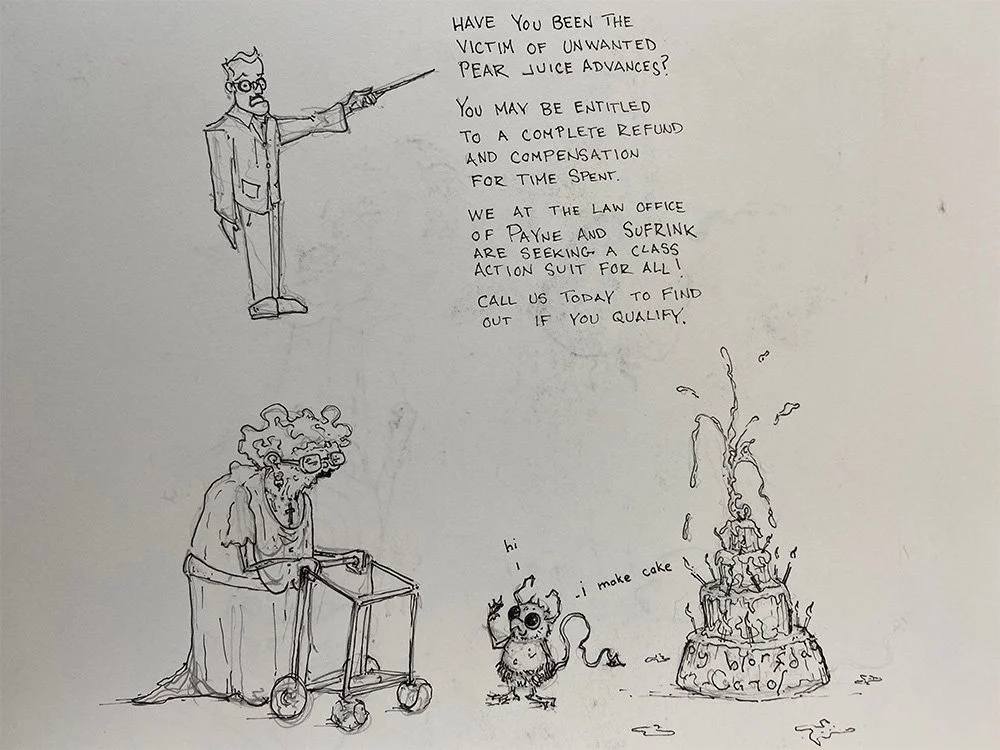 HAVE YOU BEEN THE
VICTIM OF UNWANTED
PEAR JUICE ADVANCES?
YOU MAY BE ENTITLED
TO A COMPLETE REFUND
AND COMPENSATION
FOR TIME SPENT.
WE AT THE LAW OFFICE
OF PAYNE AND SUFRINK
ARE SEEKING A CLASS
ACTION SUIT FOR ALL!
CALL US TODAY TO FIND
OUT IF YOU QUALIFY.
hi
i make cake
Carol